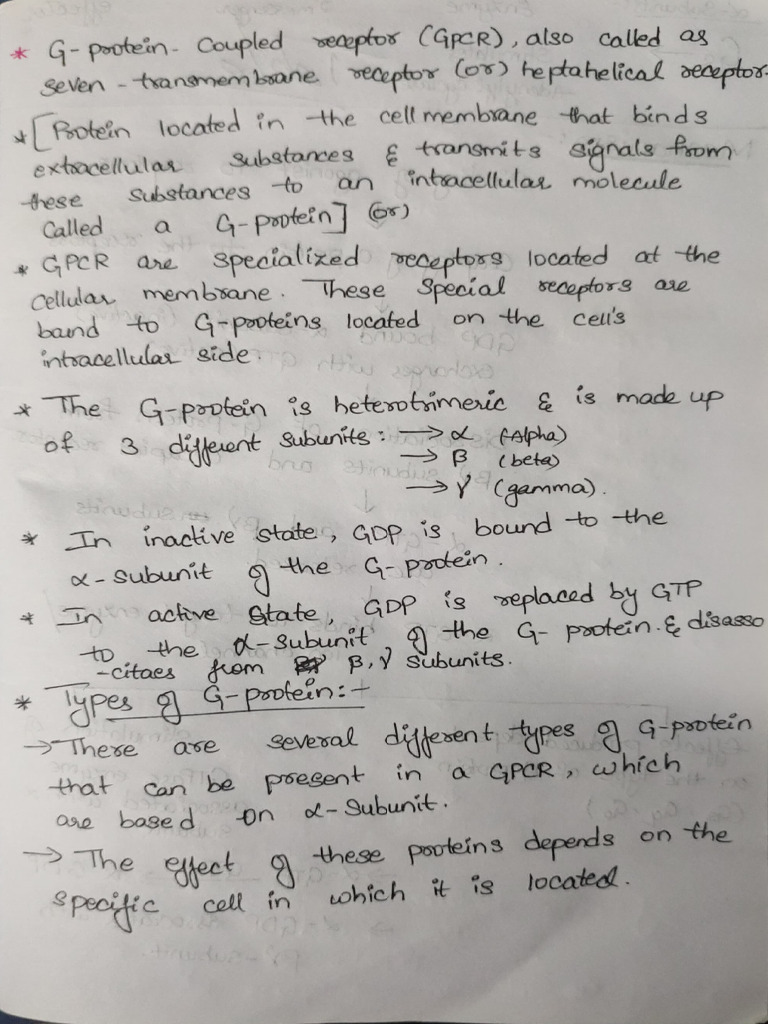 * G-protein-Coupled receptor (GPCR), also called as
seven-transmembrane receptor (or) heptahelical receptor.
* [Protein located in the cell membrane that binds
extracellular substances & transmits signals from
these substances to an intracellular molecule
Called a G-protein] (or)
* GPCR are specialized receptors located at the
cellular membrane. These special receptors are
band to G-proteins located on the cell's
intracellular side.
* The G-protein is heterotrimeric & is made up
of 3 different subunits: → α (Alpha)
→ β (beta)
→ γ (gamma).
* In inactive state, GDP is bound to the
α-subunit of the G-protein.
* In active state, GDP is replaced by GTP
to the α-subunit of the G-protein. & disasso
-citaes from β,γ subunits.
* Types of G-protein:-
→ There are several different types of G-protein
that can be present in a GPCR, which
are based on α-subunit.
→ The effect of these proteins depends on the
specific cell in which it is located.